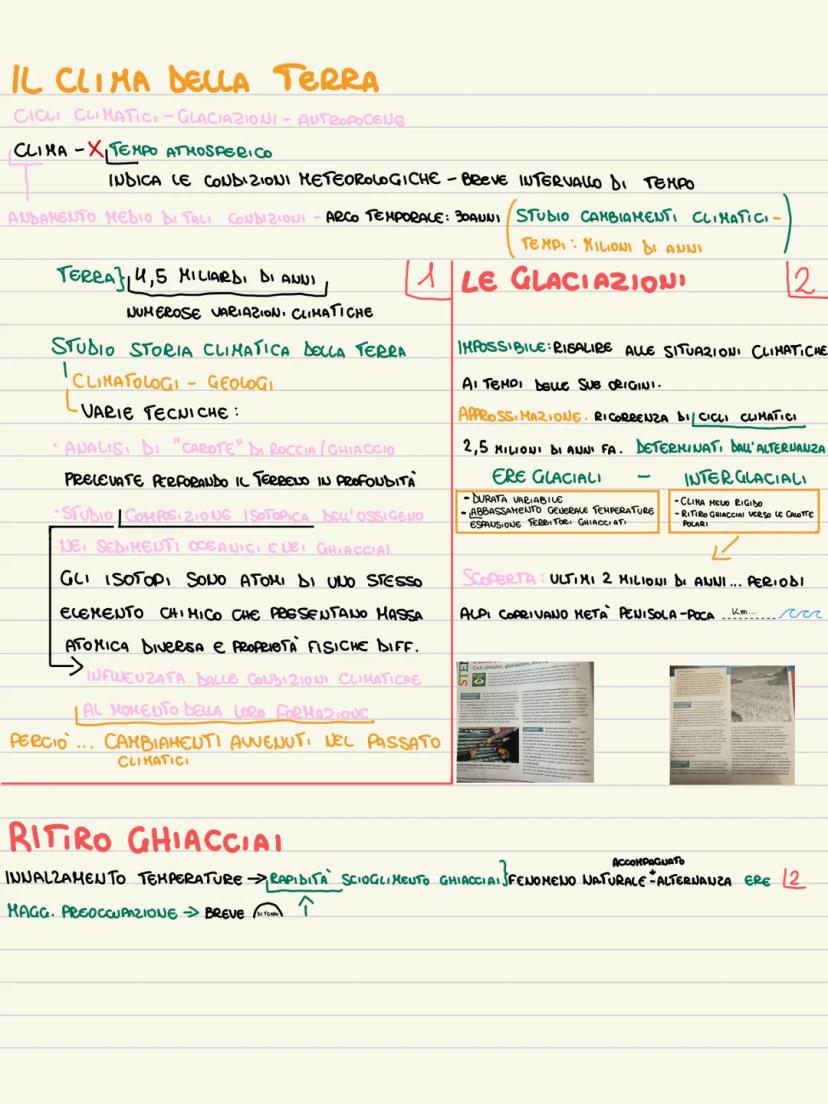 IL CLIMA DELLA TERRA
CICLI CLIMATICI - GLACIAZIONI - ANTROPOCENE
CLIMA - X TEMPO ATMOSFERICO
INDICA LE CONDIZIONI METEOROLOGICHE - BREVE INTERVALLO DI TEMPO
ANDAMENTO MEDIO DI TALI CONDIZIONI - ARCO TEMPORALE: 30 ANNI (STUDIO CAMBIAMENTI CLIMATICI -
TEMPI: MILIONI DI ANNI)
TERRA} 4,5 MILIARDI DI ANNI 1
NUMEROSE VARIAZIONI CLIMATICHE
STUDIO STORIA CLIMATICA DELLA TERRA
CLIMATOLOGI - GEOLOGI
VARIE TECNICHE:
· ANALISI DI "CAROTE" DI ROCCIA/GHIACCIO
PRELEVATE PERFORANDO IL TERRENO IN PROFONDITÀ
· STUDIO COMPOSIZIONE ISOTOPICA DELL'OSSIGENO
NEI SEDIMENTI OCEANICI E NEI GHIACCIAI
GLI ISOTOPI SONO ATOMI DI UNO STESSO
ELEMENTO CHIMICO CHE PRESENTANO MASSA
ATOMICA DIVERSA E PROPRIETÀ FISICHE DIFF.
→ INFLUENZATA DALLE CONDIZIONI CLIMATICHE
AL MOMENTO DELLA LORO FORMAZIONE
PERCIÒ... CAMBIAMENTI AVVENUTI NEL PASSATO
CLIMATICI
LE GLACIAZIONI 2
IMPOSSIBILE: RISALIRE ALLE SITUAZIONI CLIMATICHE
AI TEMPI DELLE SUE ORIGINI.
APPROSSIMAZIONE. RICORRENZA DI CICLI CLIMATICI
2,5 MILIONI DI ANNI FA. DETERMINATI DALL'ALTERNANZA
ERE GLACIALI - INTERGLACIALI
- DURATA VARIABILE
- ABBASSAMENTO GENERALE TEMPERATURE
ESPANSIONE TERRITORI GHIACCIATI
- CLIMA MENO RIGIDO
- RITIRO GHIACCIAI VERSO LE CALOTTE
POLARI
SCOPERTA: ULTIMI 2 MILIONI DI ANNI... PERIODI
ALPI COPRIVANO METÀ PENISOLA - POCA Km...
Cicli climatici, glaciazioni,
RITIRO GHIACCIAI
ACCOMPAGNATO
INNALZAMENTO TEMPERATURE → RAPIDITÀ SCIOGLIMENTO GHIACCIAI} FENOMENO NATURALE - ALTERNANZA ERE 2
MAGG. PREOCCUPAZIONE → BREVE DI TEMPO ↑